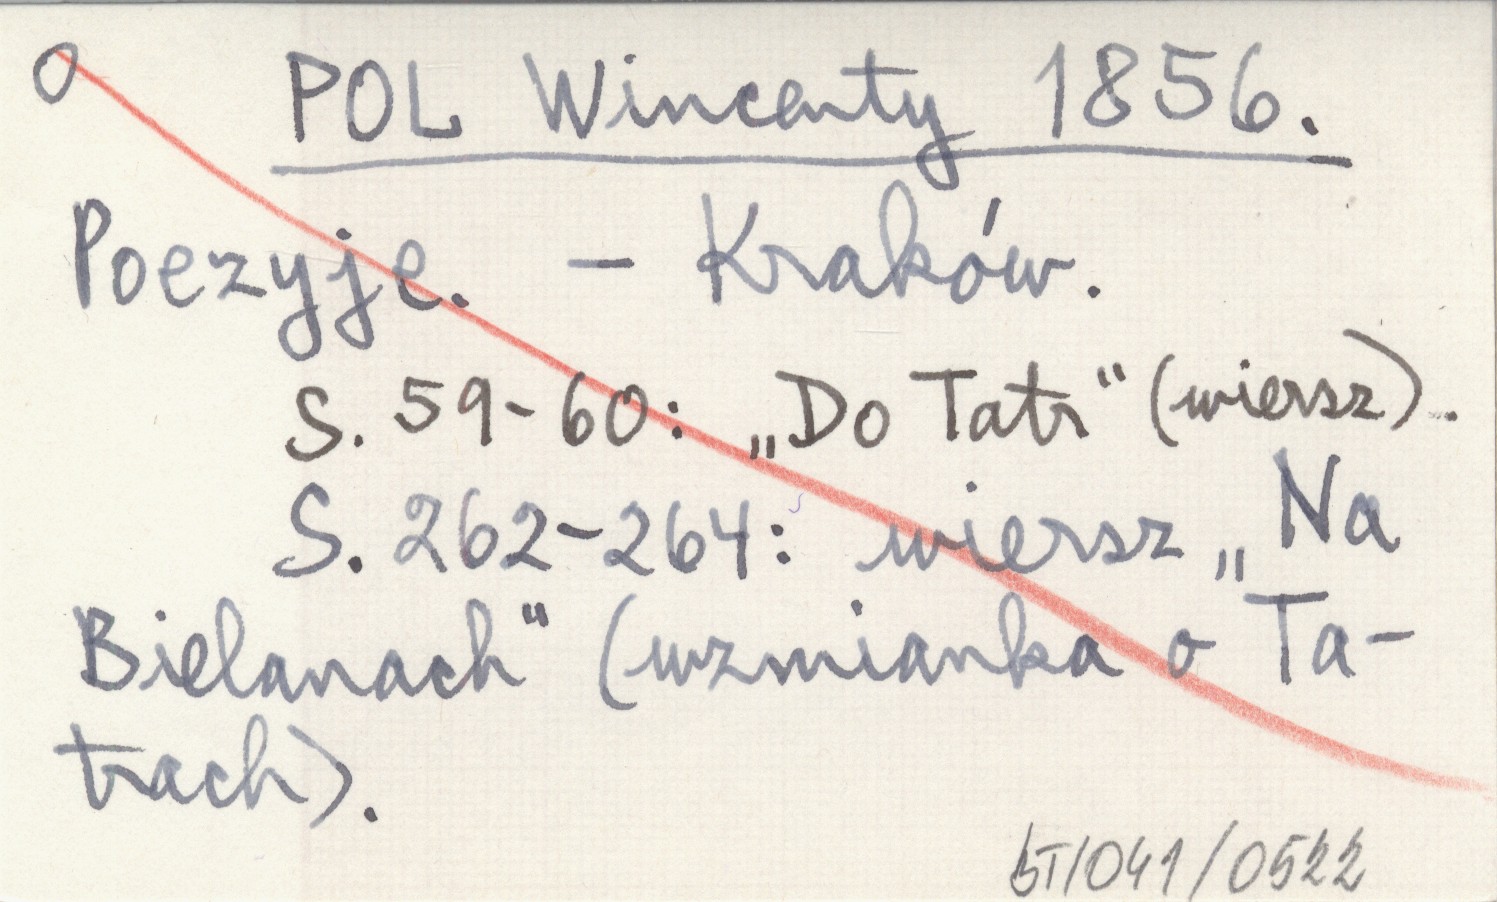 O POL Wincenty 1856.
Poezyje. – Kraków.
S. 59-60: „Do Tatr“ (wiersz).
S. 262-264: wiersz „Na
Bielanach“ (wzmianka o Ta-
trach).
bT/041/0522